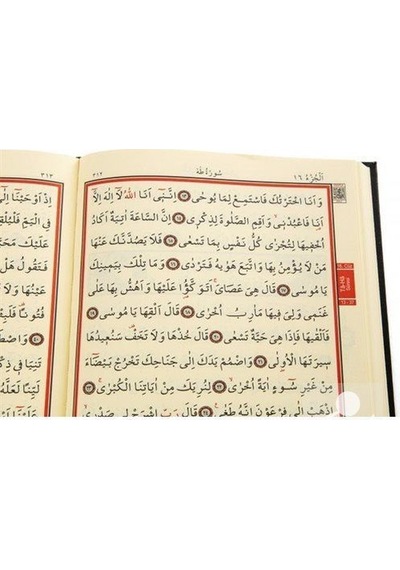 اَلْجُزْءُ ١٦
سُورَةُ طٰهٰ
٣١٢
وَاَنَا اخْتَرْتُكَ فَاسْتَمِعْ لِمَا يُوحٰى ﴿١٣﴾ اِنَّن۪ٓي اَنَا اللّٰهُ لَٓا اِلٰهَ اِلَّٓا
اَنَا فَاعْبُدْن۪ي وَاَقِمِ الصَّلٰوةَ لِذِكْر۪ي ﴿١٤﴾ اِنَّ السَّاعَةَ اٰتِيَةٌ اَكَادُ
اُخْف۪يهَا لِتُجْزٰى كُلُّ نَفْسٍ بِمَا تَسْعٰى ﴿١٥﴾ فَلَا يَصُدَّنَّكَ عَنْهَا
مَنْ لَا يُؤْمِنُ بِهَا وَاتَّبَعَ هَوٰيهُ فَتَرْدٰى ﴿١٦﴾ وَمَا تِلْكَ بِيَم۪ينِكَ
يَا مُوسٰى ﴿١٧﴾ قَالَ هِيَ عَصَايَ اَتَوَكَّؤُ۬ا عَلَيْهَا وَاَهُشُّ بِهَا عَلٰى
غَنَم۪ي وَلِيَ ف۪يهَا مَاٰرِبُ اُخْرٰى ﴿١٨﴾ قَالَ اَلْقِهَا يَا مُوسٰى ﴿١٩﴾
فَاَلْقٰيهَا فَاِذَا هِيَ حَيَّةٌ تَسْعٰى ﴿٢٠﴾ قَالَ خُذْهَا وَلَا تَخَفْ سَنُع۪يدُهَا
س۪يرَتَهَا الْاُو۫لٰى ﴿٢١﴾ وَاضْمُمْ يَدَكَ اِلٰى جَنَاحِكَ تَخْرُجْ بَيْضَٓاءَ
مِنْ غَيْرِ سُٓوءٍ اٰيَةً اُخْرٰى ﴿٢٢﴾ لِنُرِيَكَ مِنْ اٰيَاتِنَا الْكُبْرٰى ﴿٢٣﴾
اِذْهَبْ اِلٰى فِرْعَوْنَ اِنَّهُ طَغٰى ﴿٢٤﴾ قَالَ رَبِّ اشْرَحْ ل۪ي صَدْر۪ي
Tâ-Hâ
Suresi
٣١٣
اِذْ اَوْحَيْنَٓا اِلٰٓى
فِي الْيَمِّ فَلْيُلْقِ
عَلَيْكَ مَحَبَّ
فَتَقُولُ هَلْ
عَيْنُهَا وَلَا
فُتُونًا فَلَبِثْ
وَاصْطَنَ
تَنِيَا ف۪ي ذِكْ
لَيِّنًا لَعَلَّهُ